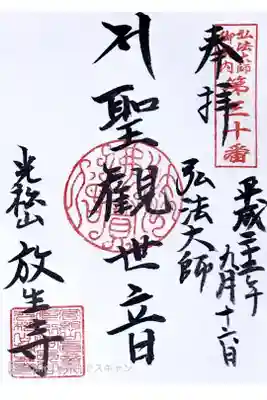 弘法大師
御府内
第三十番
奉拝
平成二十五年
九月十六日
弘法大師
聖観世音
光松山 放生寺